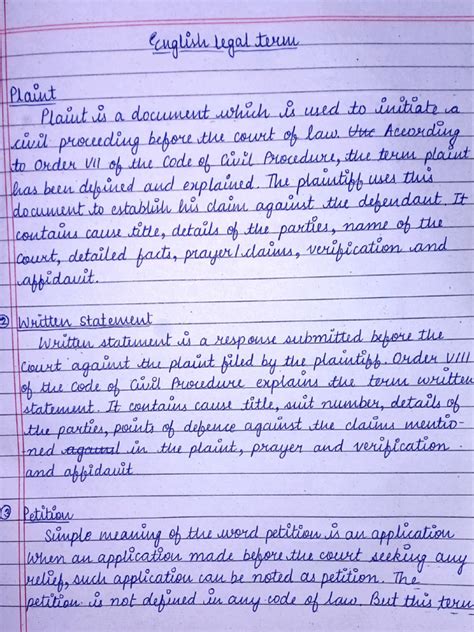 English legal term
Plaint
Plaint is a document which is used to initiate a
civil proceeding before the court of law. The According
to Order VII of the Code of Civil Procedure, the term plaint
has been defined and explained. The plaintiff uses this
document to establish his claim against the defendant. It
contains cause title, details of the parties, name of the
court, detailed facts, prayer/claims, verification and
affidavit.
2 Written statement
Written statement is a response submitted before the
court against the plaint filed by the plaintiff. Order VIII
of the Code of Civil Procedure explains the term written
statement. It contains cause title, suit number, details of
the parties, points of defence against the claims mentio-
ned against in the plaint, prayer and verification
and affidavit
3 Petition
Simple meaning of the word petition is an application
when an application made before the court seeking any
relief, such application can be noted as petition. The
petition is not defined in any code of law. But this term